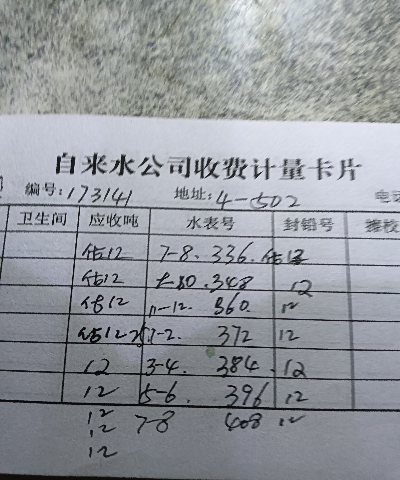 自来水公司收费计量卡片
编号: 173141 地址: 4-502 电话
卫生间 应收吨 水表号 封铅号
估12 7-8. 336. 估12
估12 348 12
估12 11-12. 360. 12
估12 1-2. 372 12
12 3-4. 384. 12
12 5-6. 396 12
12 7-8 408 12
12
12